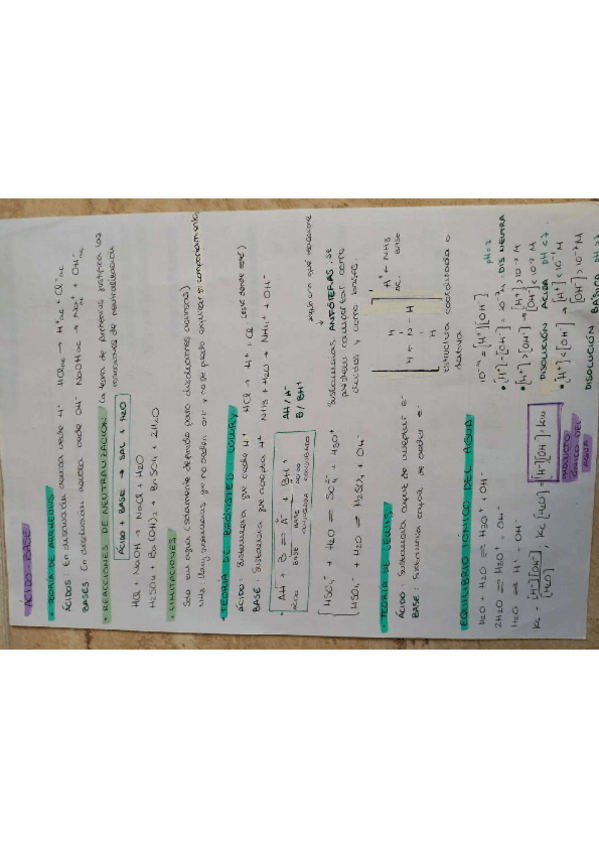 ÁCIDO-BASE
• TEORÍA DE ARRHENIUS
ÁCIDOS: En disolución acuosa cede H⁺ HCl ac → H⁺ ac + Cl⁻ ac
BASES: En disolución acuosa cede OH⁻ NaOH ac → Na⁺ ac + OH⁻ ac
• REACCIONES DE NEUTRALIZACIÓN La teoría de Arrhenius justifica las
reacciones de neutralización
ÁCIDO + BASE → SAL + H2O
HCl + NaOH → NaCl + H2O
H2SO4 + Ba(OH)2 → BaSO4 + 2H2O
• LIMITACIONES
Solo en agua (solamente aplicado para disoluciones acuosas)
NH3: Hay sustancias que no ceden OH⁻ y no se puede explicar su comportamiento
• TEORÍA DE BRÖNSTED LOWRY
ÁCIDO: Sustancia que cede H⁺ HCl → H⁺ + Cl⁻
BASE: Sustancia que acepta H⁺ NH3 + H2O → NH4⁺ + OH⁻
• AH + B ⇌ A⁻ + BH⁺ AH/A⁻
ÁCIDO BASE BASE ÁCIDO B/BH⁺
CONJUGADA CONJUGADO
según con qué reaccione
HSO4⁻ + H2O ⇌ SO4²⁻ + H3O⁺ Sustancias ANFÓTERAS: se
HSO4⁻ + H2O ⇌ H2SO4 + OH⁻ pueden comportar como
ácidos y como bases.
• TEORÍA DE LEWIS
ÁCIDO: Sustancia capaz de aceptar e⁻
BASE: Sustancia capaz de ceder e⁻
H
H ← N - H
H
H⁺ + NH3
AC. BASE
estructura coordinada o
dativa
EQUILIBRIO IÓNICO DEL AGUA
H2O + H2O ⇌ H3O⁺ + OH⁻
2H2O ⇌ H3O⁺ + OH⁻
H2O ⇌ H⁺ + OH⁻
Kc = [H⁺][OH⁻] / [H2O] ; Kc [H2O] = [H⁺][OH⁻] = Kw
PRODUCTO
IÓNICO DEL
AGUA
10⁻¹⁴ = [H⁺][OH⁻] pH=7
• [H⁺] = [OH⁻] = 10⁻⁷ M. DIS NEUTRA
• [H⁺] > [OH⁻] → [H⁺] > 10⁻⁷ M
[OH⁻] < 10⁻⁷ M
DISOLUCIÓN ÁCIDA pH < 7
• [H⁺] < [OH⁻] → [H⁺] < 10⁻⁷ M
[OH⁻] > 10⁻⁷ M
DISOLUCIÓN BÁSICA pH > 7